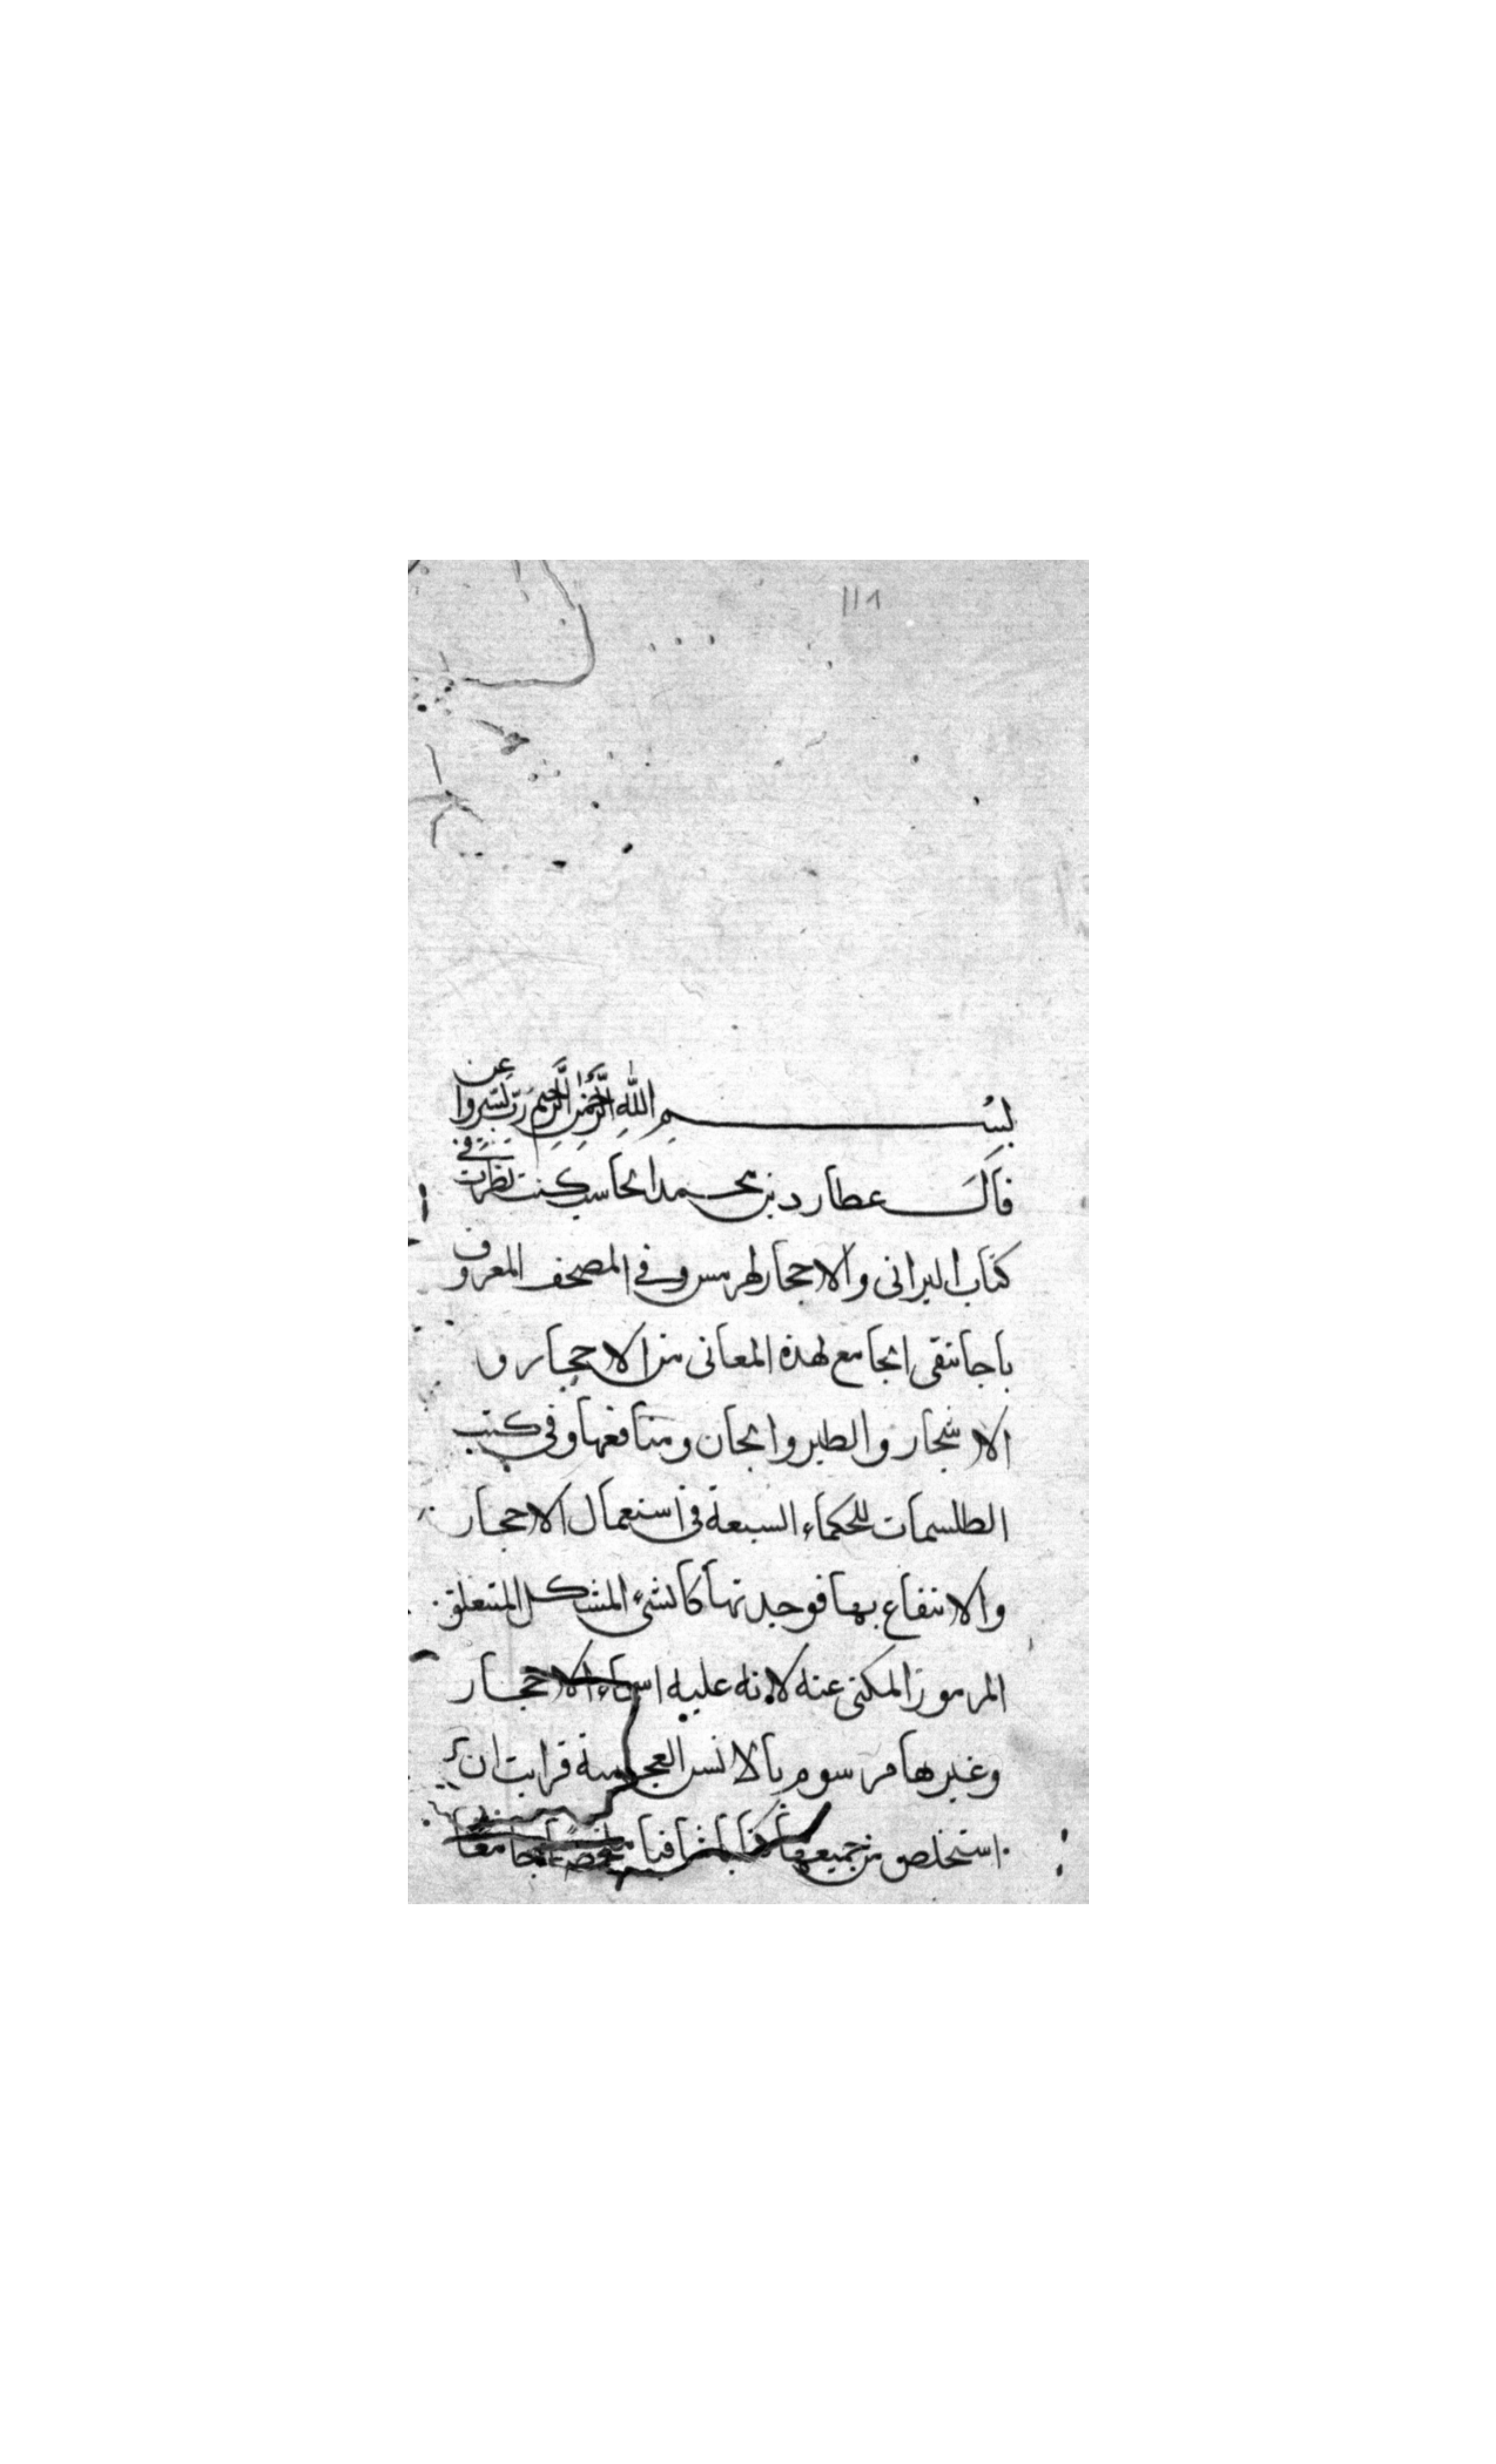 ١١٨
بسم الله الرحمن الرحيم رب يسر واعن
قال عطارد بن محمد الحاسب كنت نظرت في
كتاب البرانى والاحجار لهرمس وفي المصحف المعروف
باجانتقى الجامع لهذه المعانى من الاحجار و
الاشجار والطير والجان ومنافعها وفي كتب
الطلسمات للحكماء السبعة في استعمال الاحجار
والانتفاع بها فوجدتها كالشئ المشكل المتعلق
المرموز المكنى عنه لانه عليه اسماء الاحجار
وغيرها مرسوم بالالسن العجمية فرايت ان
استخلص من جميعها كتابا شافيا جامعا